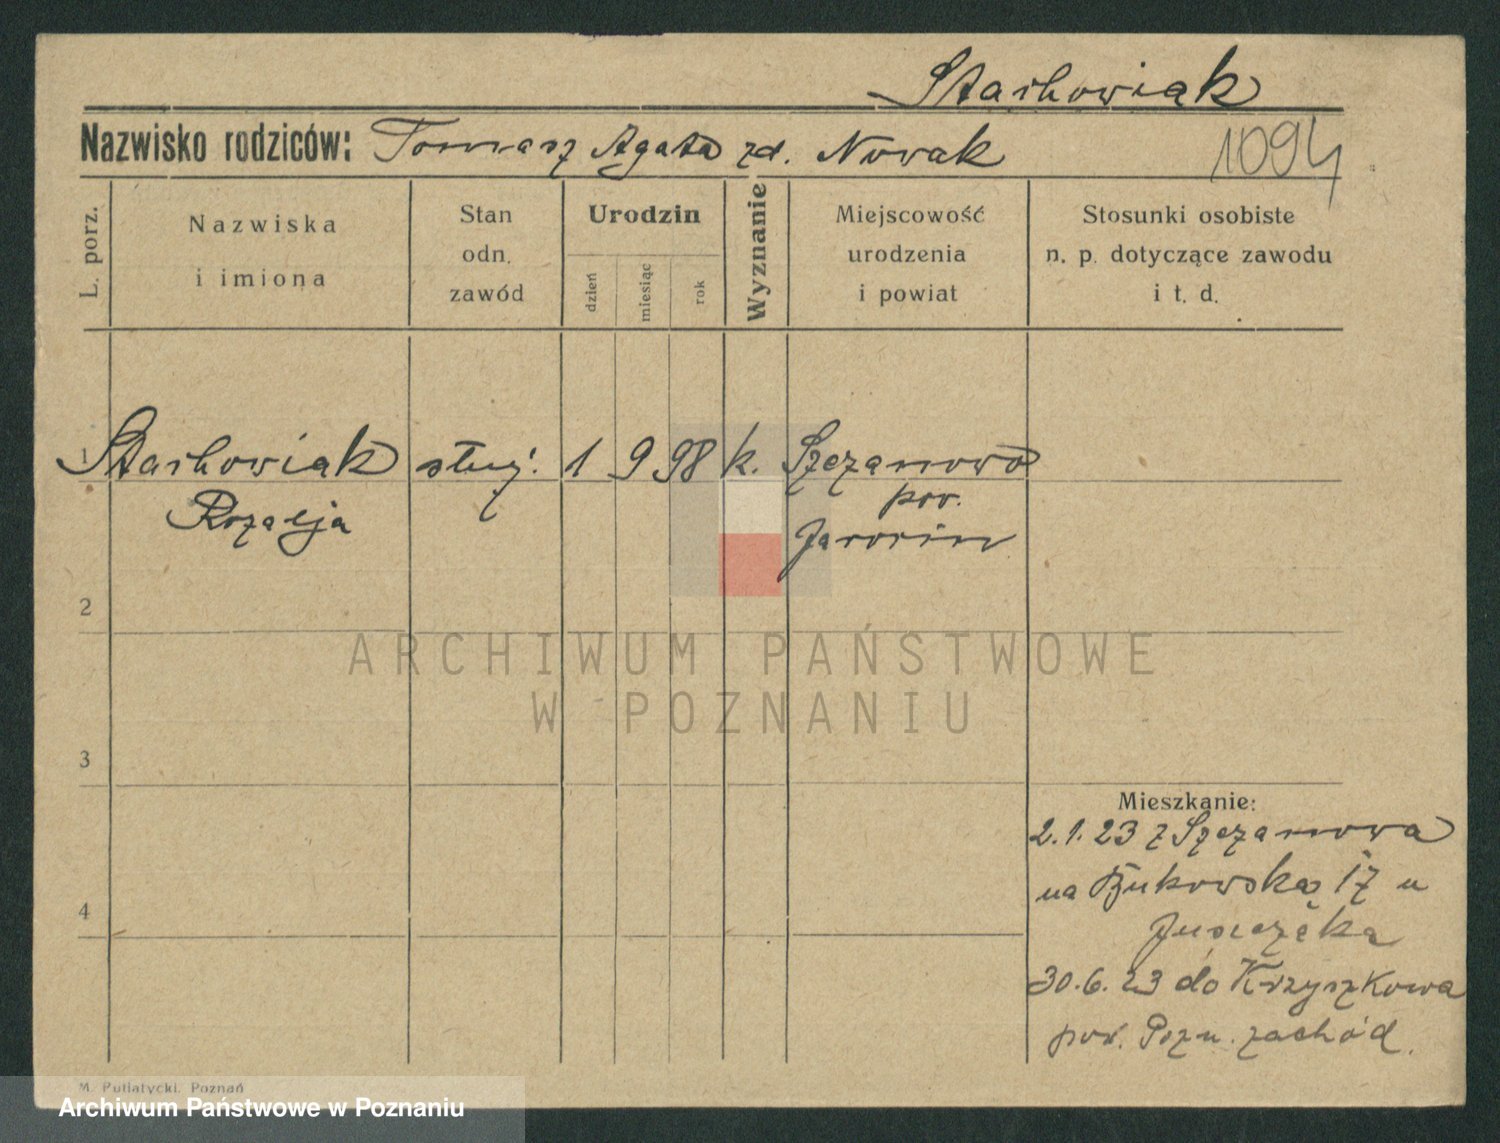 Stachowiak
Nazwisko rodziców: Tomasz Agata zd. Nowak
1094
L. porz.
Nazwiska
i imiona
Stan
odn.
zawód
Urodzin
dzień
miesiąc
rok
Wyznanie
Miejscowość
urodzenia
i powiat
Stosunki osobiste
n. p. dotyczące zawodu
i t. d.
1 Stachowiak służ. 1 9 98 k. Szczanowo
Rozalja pow.
Jarocin
2
ARCHIWUM PAŃSTWOWE
W POZNANIU
3
Mieszkanie:
2.1.23 z Szczanowa
na Bukowska 17 u
4
30.6.23 do Krzyszkowa
pow. Pozn. zachód.
M. Putiatycki, Poznań
Archiwum Państwowe w Poznaniu